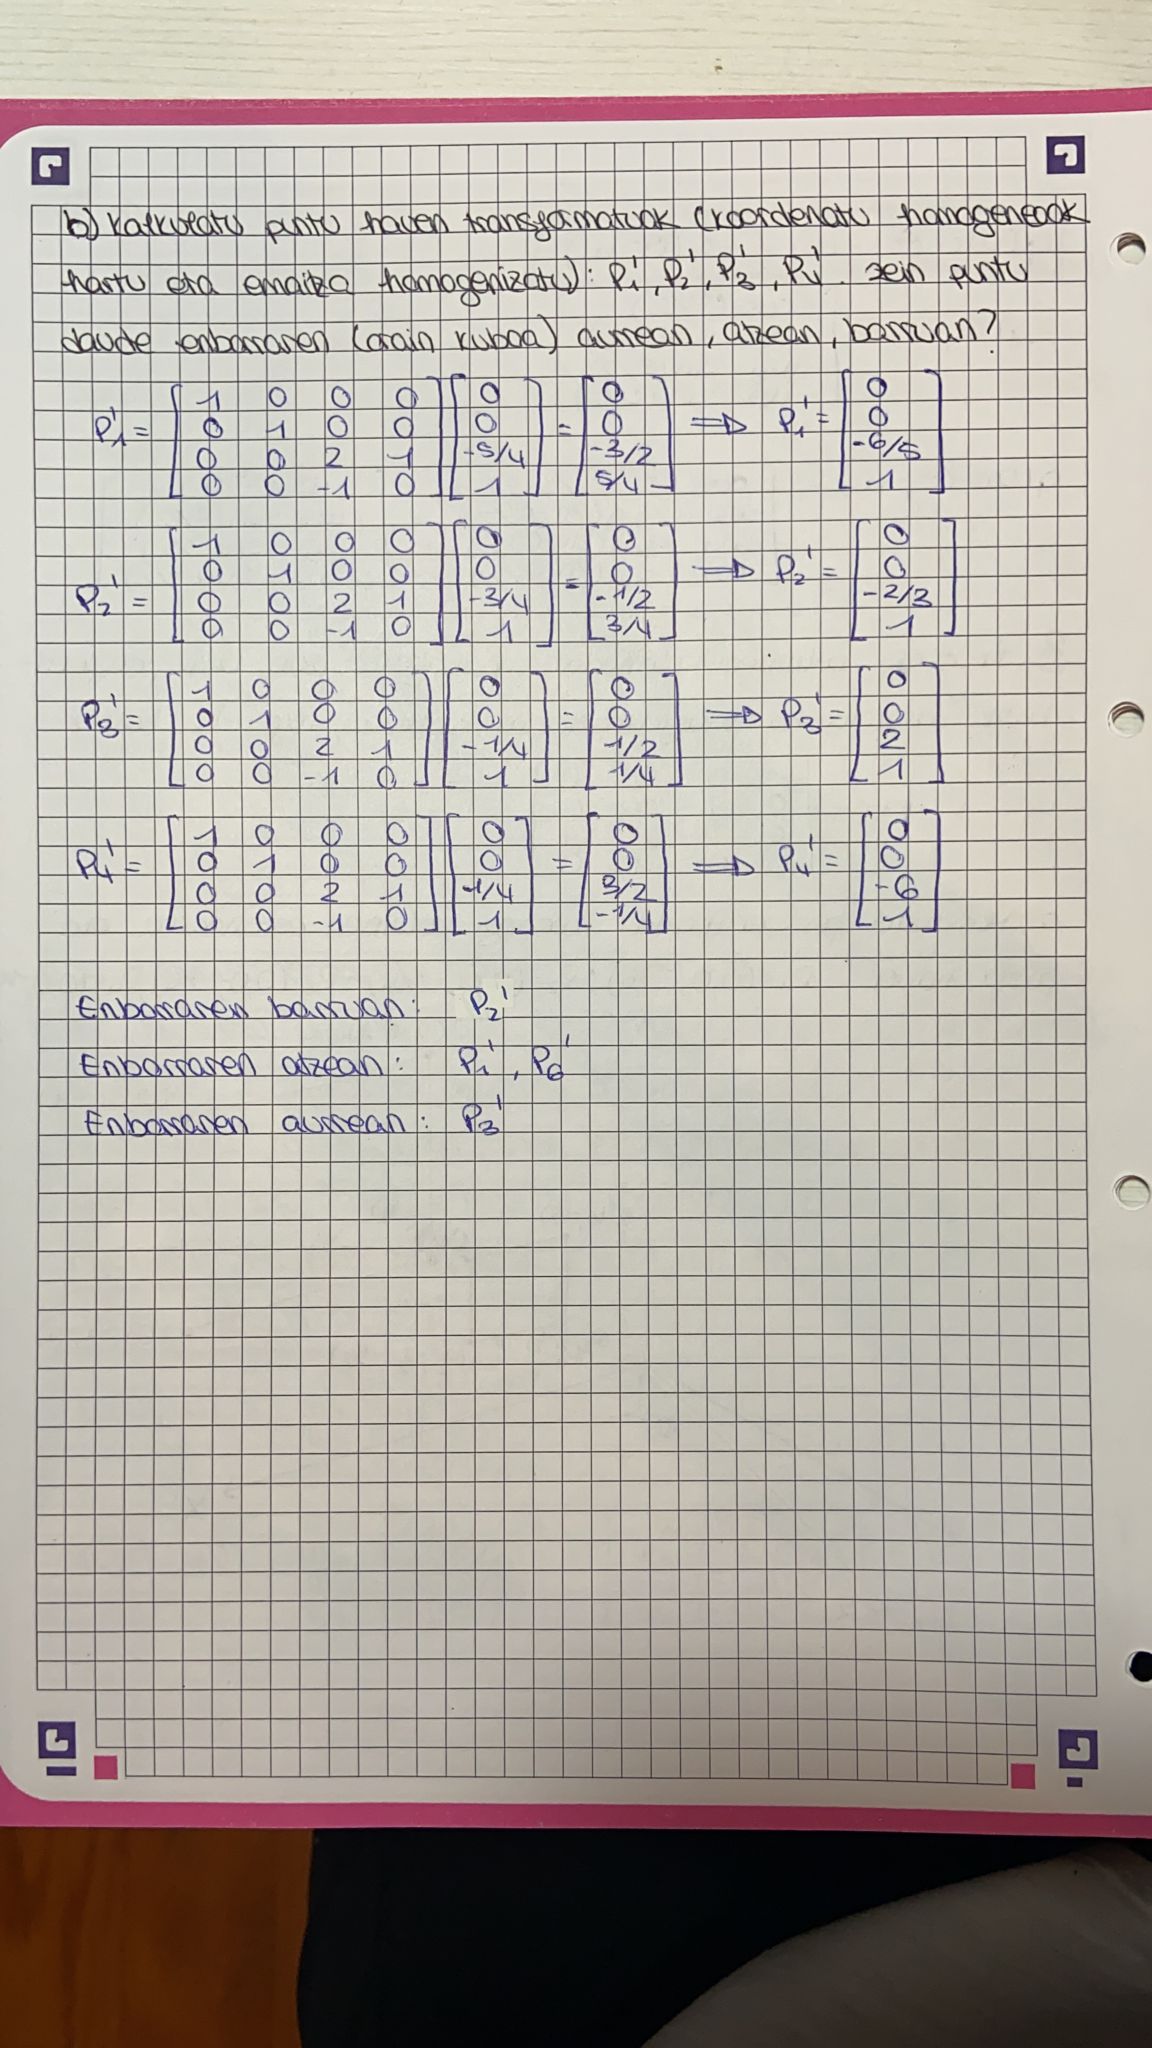 b) Kalkulatu puntu hauen transformatuak (koordenatu homogeneoak
hartu eta emaitza homogenizatu): P1', P2', P3', P4'. zein puntu
daude enborraren (orain kuboa) aurrean, atzean, barruan?
P1' = [1 0 0 0; 0 1 0 0; 0 0 2 1; 0 0 -1 0] [0; 0; -5/4; 1] = [0; 0; -3/2; 5/4] ⇒ P1' = [0; 0; -6/5; 1]
P2' = [1 0 0 0; 0 1 0 0; 0 0 2 1; 0 0 -1 0] [0; 0; -3/4; 1] = [0; 0; -1/2; 3/4] ⇒ P2' = [0; 0; -2/3; 1]
P3' = [1 0 0 0; 0 1 0 0; 0 0 2 1; 0 0 -1 0] [0; 0; -1/4; 1] = [0; 0; 1/2; 1/4] ⇒ P3' = [0; 0; 2; 1]
P4' = [1 0 0 0; 0 1 0 0; 0 0 2 1; 0 0 -1 0] [0; 0; 1/4; 1] = [0; 0; 3/2; -1/4] ⇒ P4' = [0; 0; -6; 1]
Enborraren barruan: P2'
Enborraren atzean: P1', P6'
Enborraren aurrean: P3'